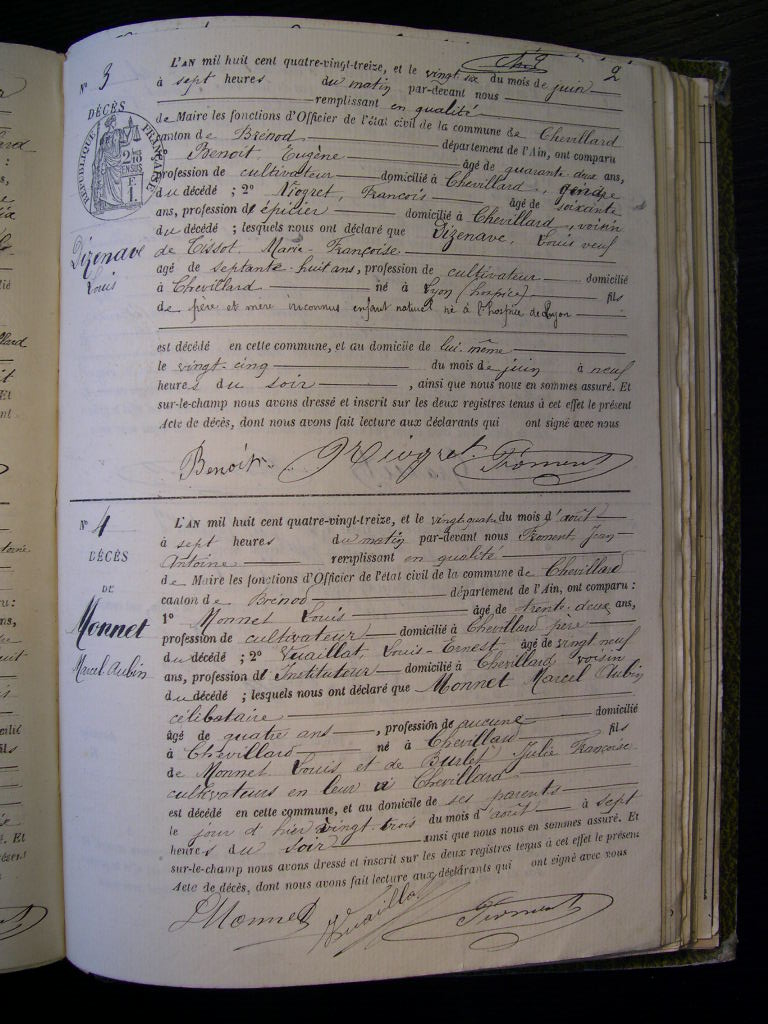 2
N° 3
DÉCÈS
RÉPUBLIQUE FRANÇAISE
Dizenave
Louis
L'AN mil huit cent quatre-vingt-treize, et le vingt six du mois de juin
à sept heures du matin par-devant nous
remplissant en qualité
de Maire les fonctions d'Officier de l'état civil de la commune de Chevillard
canton de Brénod département de l'Ain, ont comparu
Benoit Eugène âgé de quarante deux ans,
profession de cultivateur domicilié à Chevillard, gendre
du décédé ; 2° Niogret, François âgé de soixante
ans, profession de épicier domicilié à Chevillard, voisin
du décédé ; lesquels nous ont déclaré que Dizenave, Louis veuf
de Tissot Marie-Françoise
âgé de septante-huit ans, profession de cultivateur domicilié
à Chevillard né à Lyon (hospice) fils
de père et mère inconnus enfant naturel né à l'hospice de Lyon
est décédé en cette commune, et au domicile de lui-même
le vingt-cinq du mois de juin à neuf
heures du soir, ainsi que nous nous en sommes assuré. Et
sur-le-champ nous avons dressé et inscrit sur les deux registres tenus à cet effet le présent
Acte de décès, dont nous avons fait lecture aux déclarants qui ont signé avec nous
Benoit Niogret Froment
N° 4
DÉCÈS
DE
Monnet
Marcel Aubin
L'AN mil huit cent quatre-vingt-treize, et le vingt-quatre du mois d'août
à sept heures du matin par-devant nous Froment Jean
Antoine remplissant en qualité
de Maire les fonctions d'Officier de l'état civil de la commune de Chevillard
canton de Brénod département de l'Ain, ont comparu :
1° Monnet Louis âgé de trente-deux ans,
profession de cultivateur domicilié à Chevillard père
du décédé ; 2° Vuaillat, Louis-Ernest âgé de vingt neuf
ans, profession d'Instituteur domicilié à Chevillard voisin
du décédé ; lesquels nous ont déclaré que Monnet Marcel Aubin
célibataire
âgé de quatre ans, profession de aucune domicilié
à Chevillard né à Chevillard fils
de Monnet Louis et de Burlet Julie Françoise
cultivateurs en leur vi Chevillard
est décédé en cette commune, et au domicile de ses parents
le jour d'hier vingt-trois du mois d'août à sept
heures du soir ainsi que nous nous en sommes assuré. Et
sur-le-champ nous avons dressé et inscrit sur les deux registres tenus à cet effet le présent
Acte de décès, dont nous avons fait lecture aux déclarants qui ont signé avec nous
L Monnet Vuaillat Froment